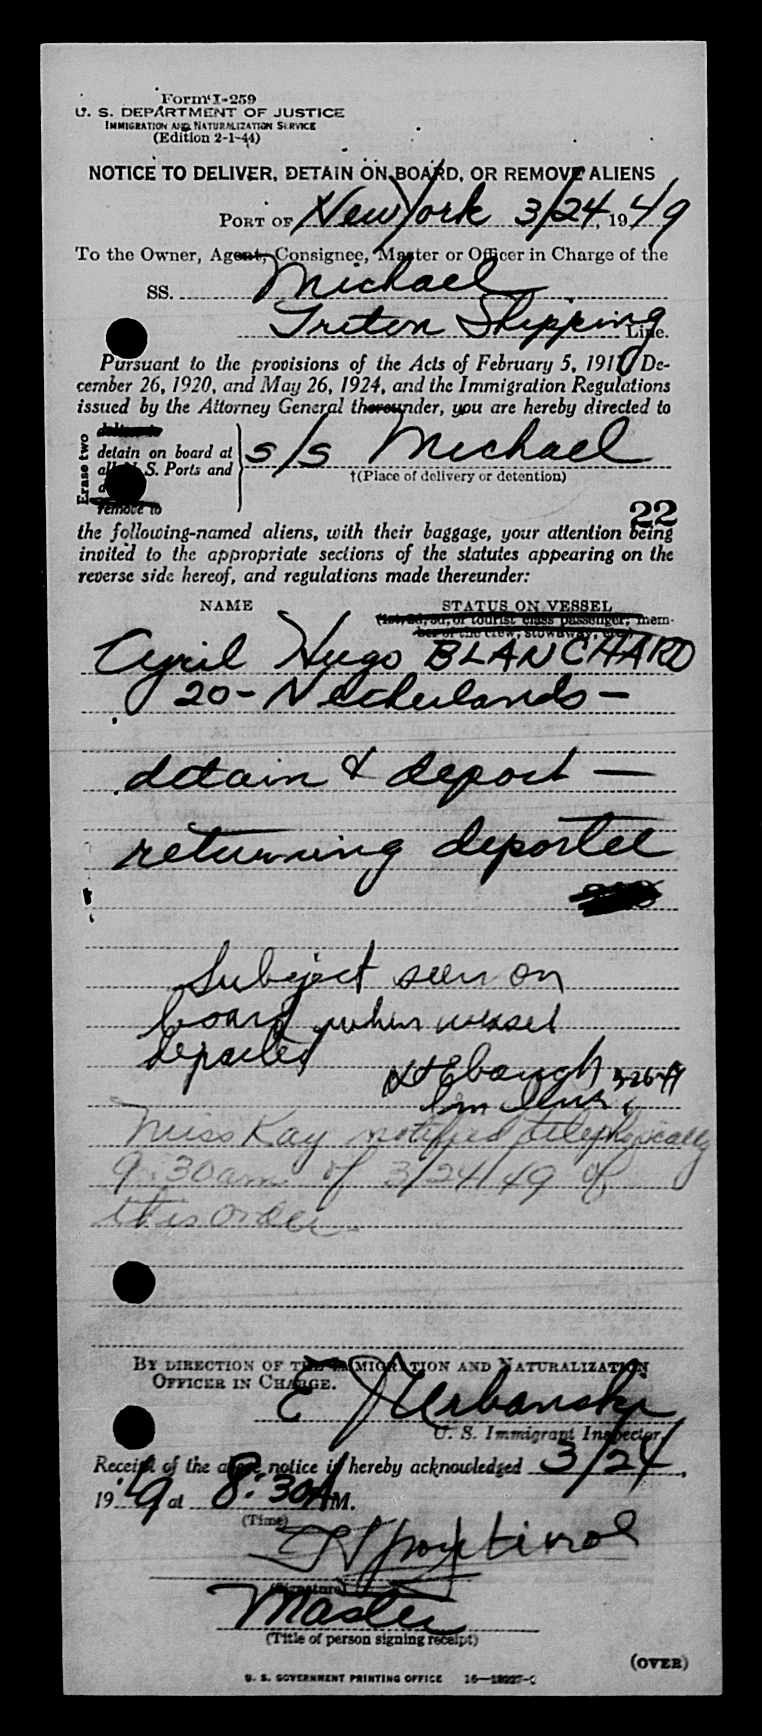 Form I-259
U. S. DEPARTMENT OF JUSTICE
IMMIGRATION AND NATURALIZATION SERVICE
(Edition 2-1-44)
NOTICE TO DELIVER, DETAIN ON BOARD, OR REMOVE ALIENS
PORT OF New York 3/24, 1949
To the Owner, Agent, Consignee, Master or Officer in Charge of the
SS. Michael
Triton Shipping Line.
Pursuant to the provisions of the Acts of February 5, 1917, De-
cember 26, 1920, and May 26, 1924, and the Immigration Regulations
issued by the Attorney General thereunder, you are hereby directed to
Erase two
deliver to
detain on board at
all U. S. Ports and
remove to
s/s Michael
†(Place of delivery or detention)
22
the following-named aliens, with their baggage, your attention being
invited to the appropriate sections of the statutes appearing on the
reverse side hereof, and regulations made thereunder:
NAME STATUS ON VESSEL
(1st, 2d, 3d, or tourist class passenger, mem-
ber of the crew, stowaway, etc.)
Cyril Hugo BLANCHARD
20 - Netherlands -
detain & deport -
returning deportee
Subject seen on
board when vessel
departed
3-26-49
Miss Kay notified telephonically
9:30am of 3/24/49 of
this order.
BY DIRECTION OF THE IMMIGRATION AND NATURALIZATION
OFFICER IN CHARGE.
E J Urbanski
U. S. Immigrant Inspector.
Receipt of the above notice is hereby acknowledged 3/24,
1949 at 8:30 A M.
(Time)
(Signature)
Master
(Title of person signing receipt)
(OVER)
U. S. GOVERNMENT PRINTING OFFICE